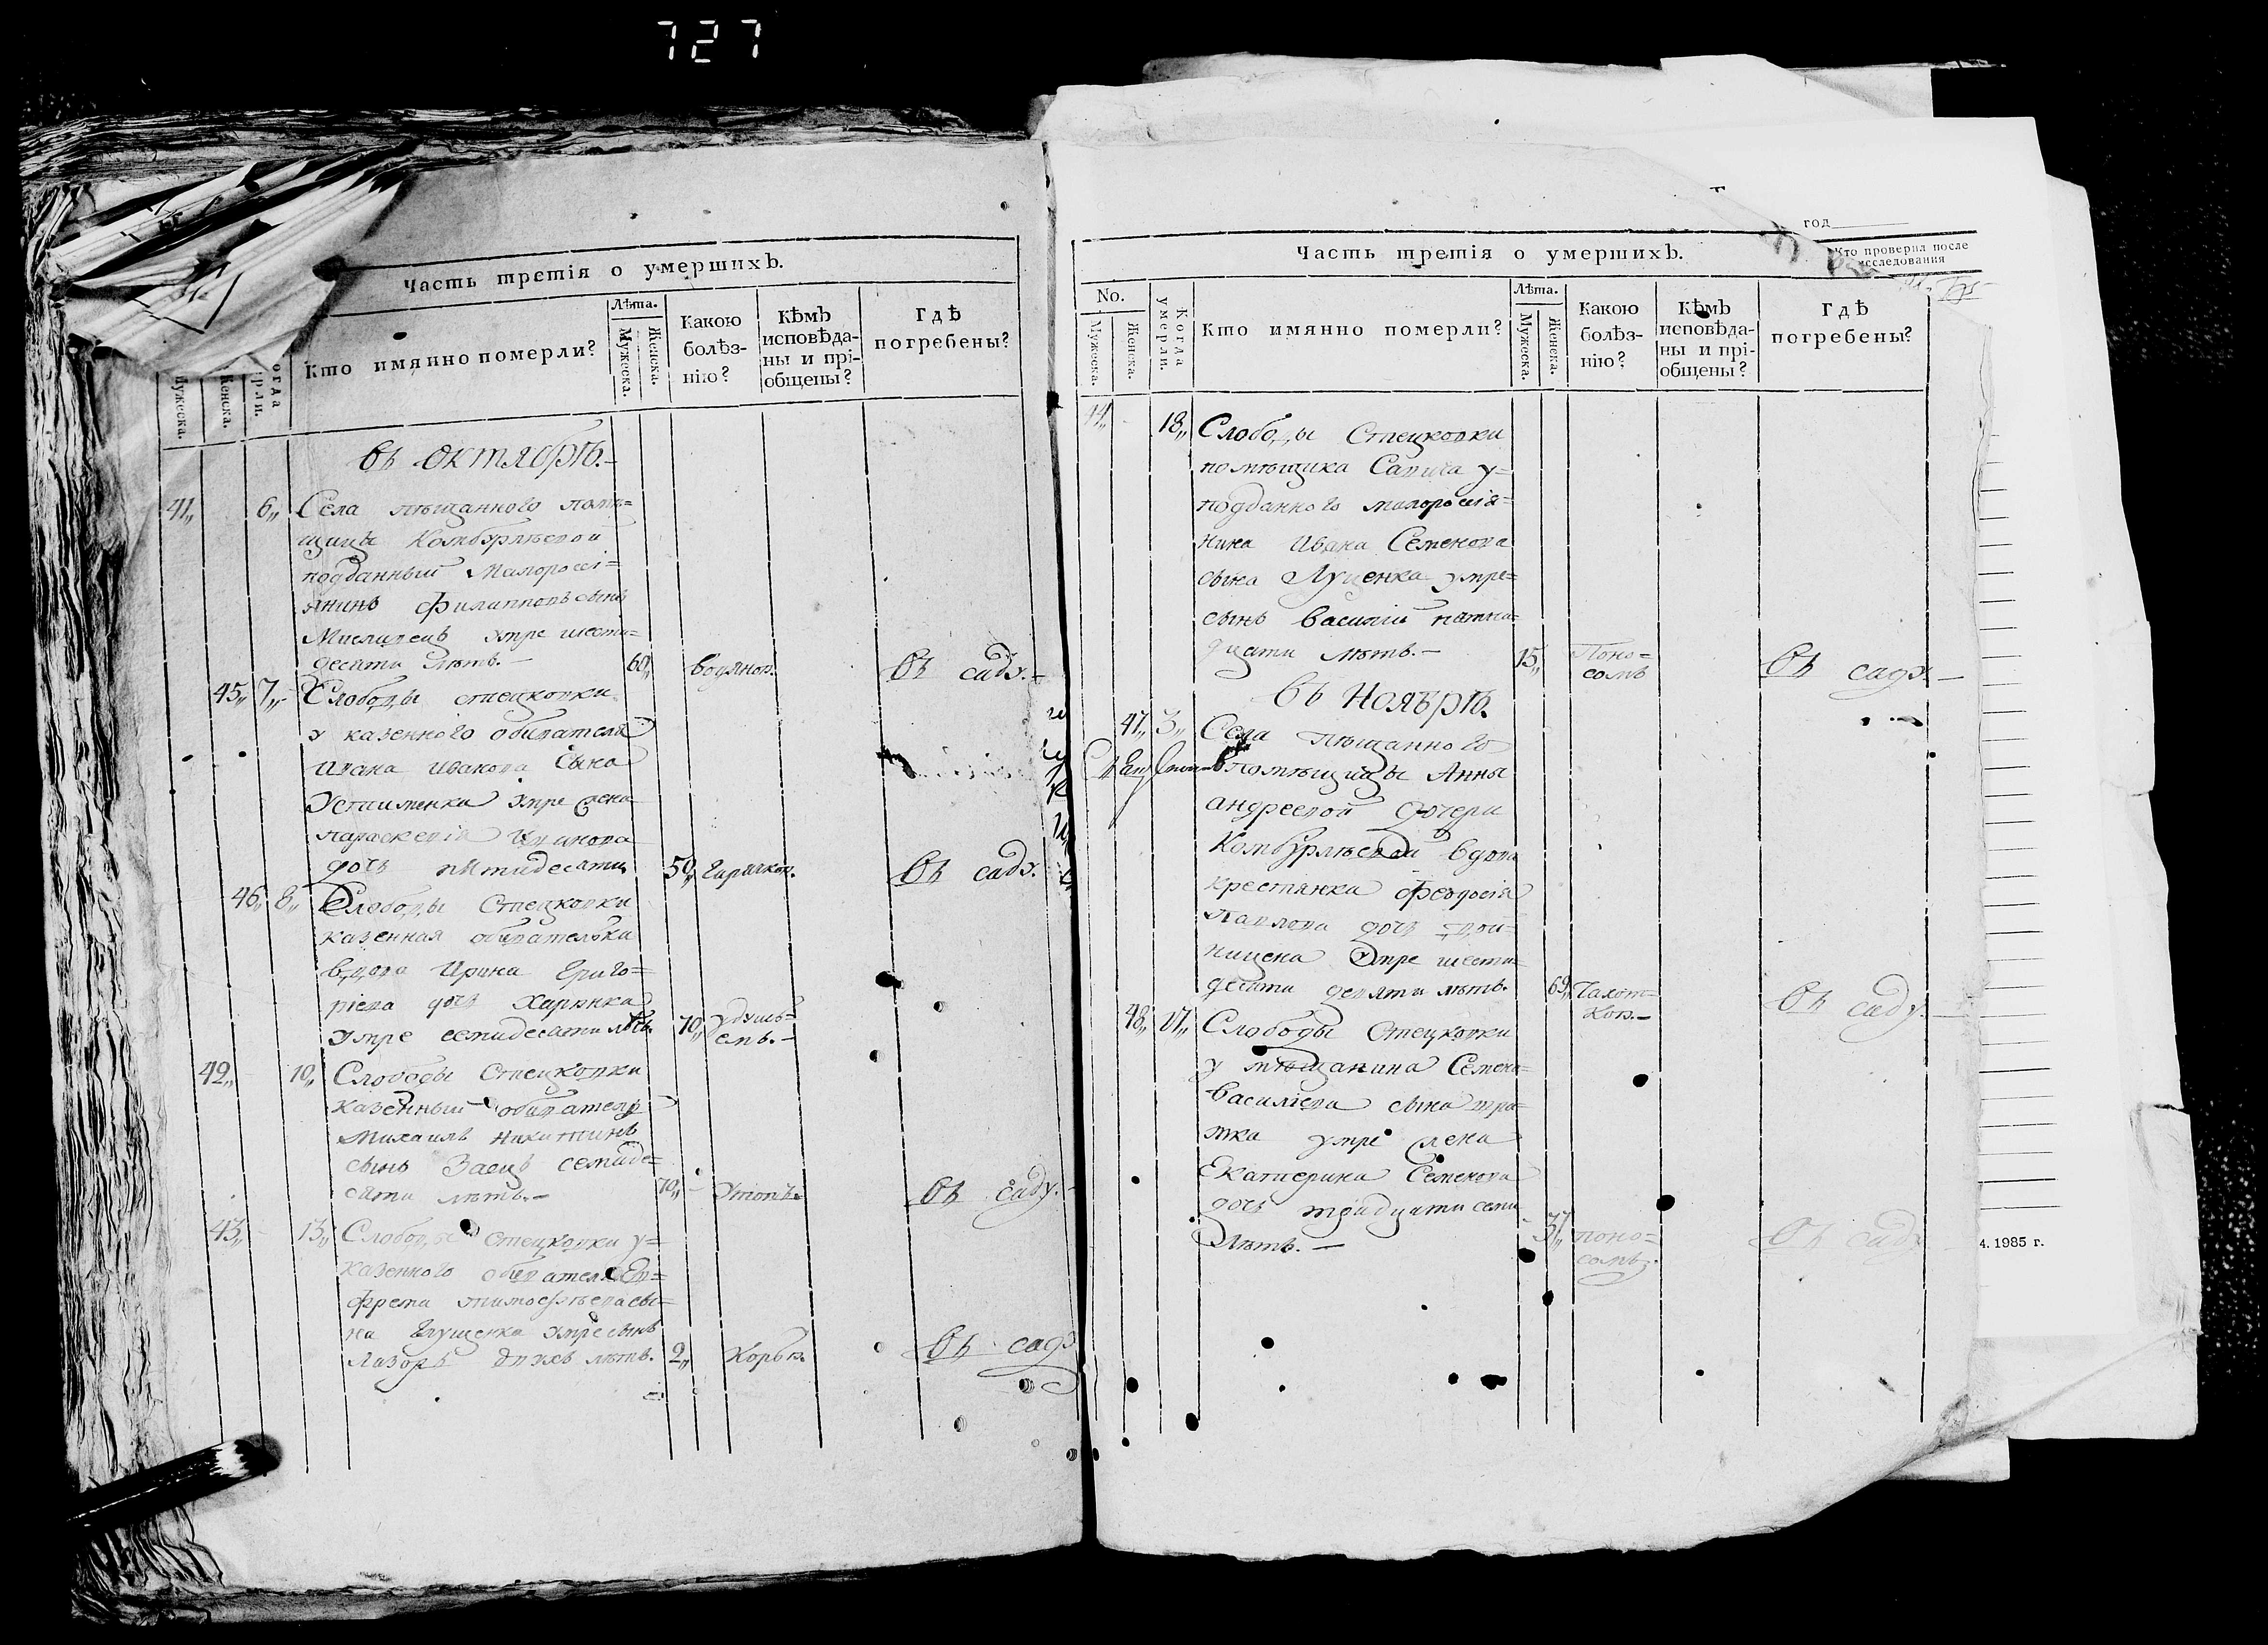 727
Часть третія о умершихъ.
Мужеска.
Женска.
Кто имянно померли?
Лѣта.
Мужеска.
Женска.
Какою болѣз-нію?
Кѣмъ исповѣда-ны и прі-общены?
Гдѣ погребены?
въ октябрѣ.
41,, 6,, Села пѣщанного помѣ=
щицы Комбурлѣевой
подданный Малороссі=
янинъ Филипповъ сынъ
умре шести=
десяти лѣтъ.— 60,, водяною. въ саду.—
45,, 7,, Слободы Стецковки
у казенного обывателя
Ивана Иванова сына
Устименка умре жена
параскевія Иванова
дочь пятидесяти 50,, гарячкою. въ саду.
46,, 8,, Слободы Стецковки
казенная обывателька
вдова Ирина Григо=
ріева дочь
умре семидесяти лѣтъ. 70,, удушь=
емъ.—
42,, 10,, Слободы Стецковки
казенный обыватель
Михаилъ Никитинъ
сынъ Заецъ семиде=
сяти лѣтъ.— 70,, утопъ. въ саду.—
43,, 13,, Слободы Стецковки у=
казенного обывателя Еv=
фрема тимофѣева сы=
на Глущенка умре сынъ
Лазоръ двухъ лѣтъ. 2,, Корью. въ саду
год
Кто проверил после исследования
Часть третія о умершихъ.
No.
Мужеска.
Женска.
Когда умерли.
Кто имянно померли?
Лѣта.
Мужеска.
Женска.
Какою болѣз-нію?
Кѣмъ исповѣда-ны и прі-общены?
Гдѣ погребены?
44,, 18,, Слободы Стецковки
помѣщика у=
подданного малороссія=
нина Ивана Семенова
сына Луценка умре=
сынъ Василій пятна=
дцати лѣтъ.— 15,, Поно=
сомъ въ саду.—
въ Ноябрѣ.
47,, 3,, Села пѣщанного
помѣщицы Анны
андреевой дочери
Комбурлѣевой вдова
крестянка Феодосія
Павлова дочь
умре шести=
десяти девяти лѣтъ. 69,, Чахот=
кою.— въ саду.—
48,, 17,, Слободы Стецковки
у мѣщанина Семена
Василіева сына
умре жена
Екатерина Семенова
дочь тридцати семи
лѣтъ.— 37,, поно=
сомъ. въ саду
4. 1985 г.